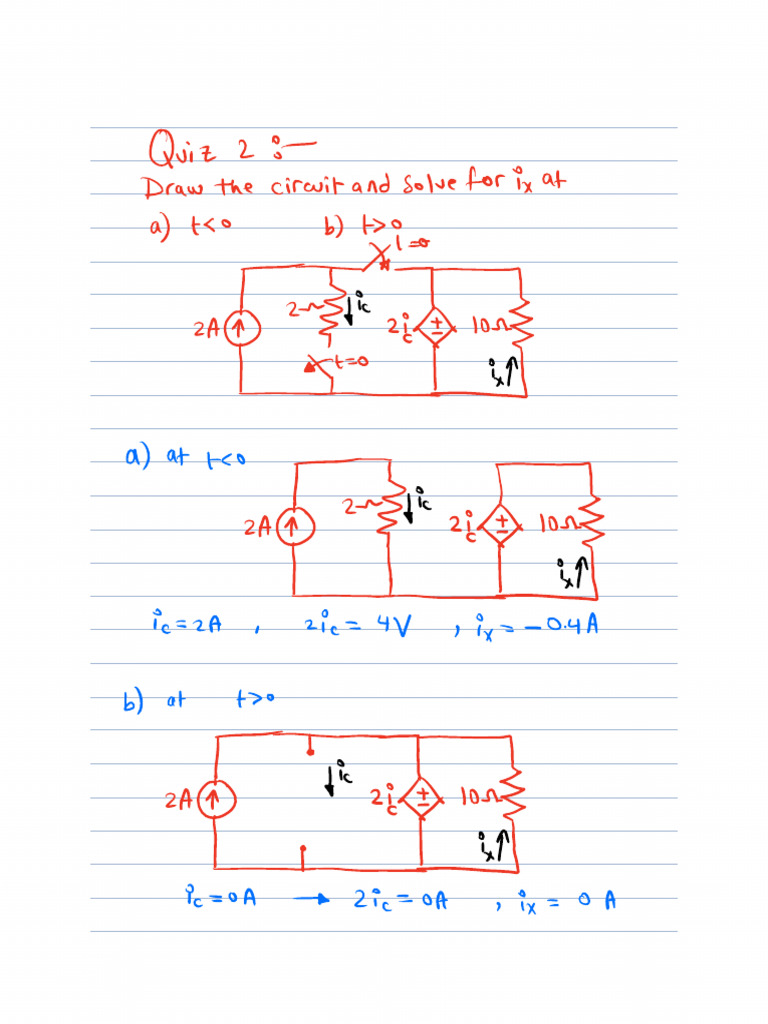 Quiz 2 :-
Draw the circuit and solve for ix at
a) t<0 b) t>0
t=0
2A 2Ω ic 2ic + - 10Ω
t=0
ix
a) at t<0
2A 2Ω ic 2ic + - 10Ω
ix
ic = 2A , 2ic = 4V , ix = -0.4A
b) at t>0
ic
2A 2ic + - 10Ω
ix
ic = 0A → 2ic = 0A , ix = 0 A